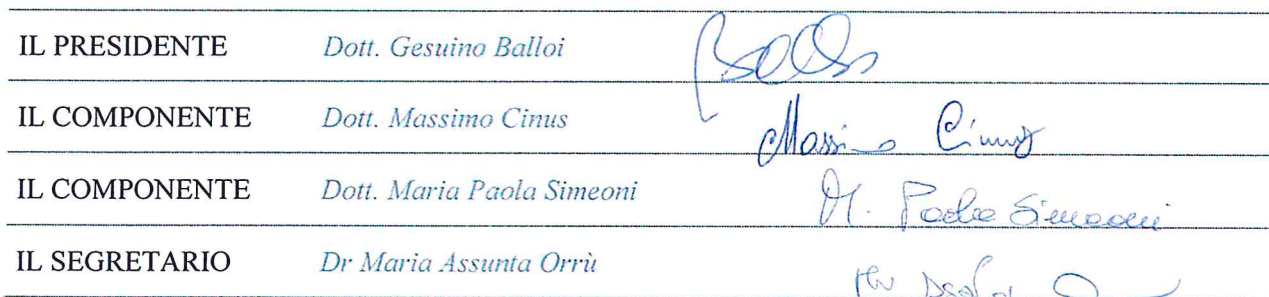 IL PRESIDENTE Dott. Gesuino Balloi
IL COMPONENTE Dott. Massimo Cinus Massimo Cinus
IL COMPONENTE Dott. Maria Paola Simeoni M. Paola Simeoni
IL SEGRETARIO Dr Maria Assunta Orrù